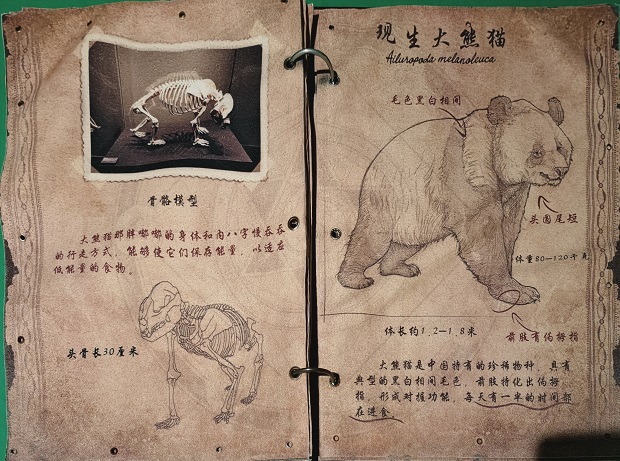 骨骼模型
大熊猫那胖嘟嘟的身体和内八字慢吞吞
的行走方式，能够使它们保存能量，以适应
低能量的食物。
头骨长30厘米
现生大熊猫
Ailuropoda melanoleuca
毛色黑白相间
头圆尾短
体重80—120千克
前肢有伪拇指
体长约1.2—1.8米
大熊猫是中国特有的珍稀物种，具有
典型的黑白相间毛色，前肢特化出伪拇
指，形成对握功能，每天有一半的时间都
在进食。